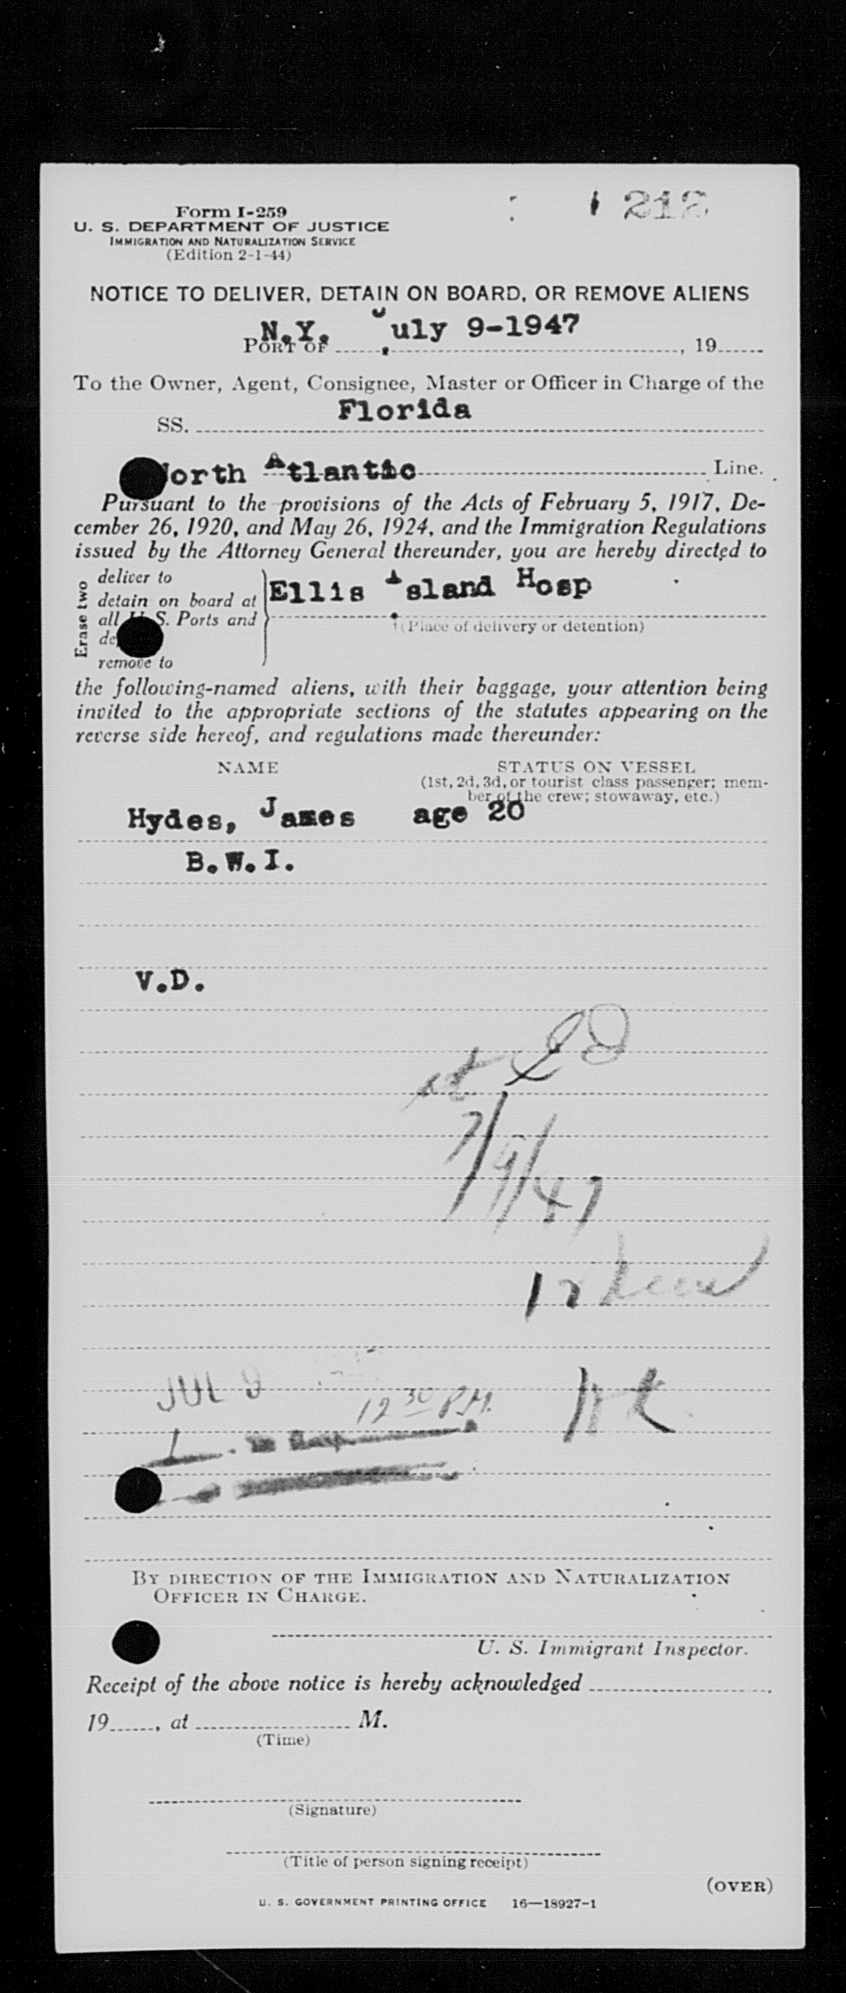 212
Form I-259
U. S. DEPARTMENT OF JUSTICE
IMMIGRATION AND NATURALIZATION SERVICE
(Edition 2-1-44)
NOTICE TO DELIVER, DETAIN ON BOARD, OR REMOVE ALIENS
PORT OF N.Y. July 9-1947, 19
To the Owner, Agent, Consignee, Master or Officer in Charge of the
SS. Florida
North Atlantic Line.
Pursuant to the provisions of the Acts of February 5, 1917, De-
cember 26, 1920, and May 26, 1924, and the Immigration Regulations
issued by the Attorney General thereunder, you are hereby directed to
Erase two
deliver to
detain on board at
all U. S. Ports and
remove to
Ellis Island Hosp
(Place of delivery or detention)
the following-named aliens, with their baggage, your attention being
invited to the appropriate sections of the statutes appearing on the
reverse side hereof, and regulations made thereunder:
NAME
STATUS ON VESSEL
(1st, 2d, 3d, or tourist class passenger; mem-
ber of the crew; stowaway, etc.)
Hydes, James age 20
B.W.I.
V.D.
7/9/47
JUL 9
12 30 P.M.
BY DIRECTION OF THE IMMIGRATION AND NATURALIZATION
OFFICER IN CHARGE.
U. S. Immigrant Inspector.
Receipt of the above notice is hereby acknowledged
19, at M.
(Time)
(Signature)
(Title of person signing receipt)
(OVER)
U. S. GOVERNMENT PRINTING OFFICE 16—18927-1